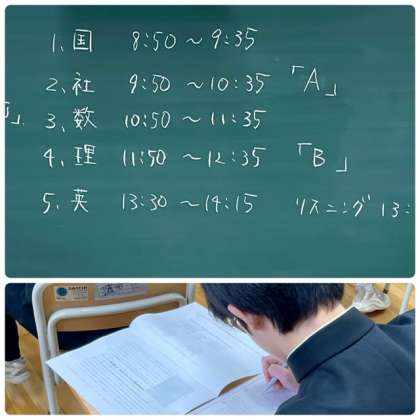 1、国 8:50 ～ 9:35
2、社 9:50 ～ 10:35 「A」
3、数 10:50 ～ 11:35
4、理 11:50 ～ 12:35 「B」
5、英 13:30 ～ 14:15 リスニング 13: